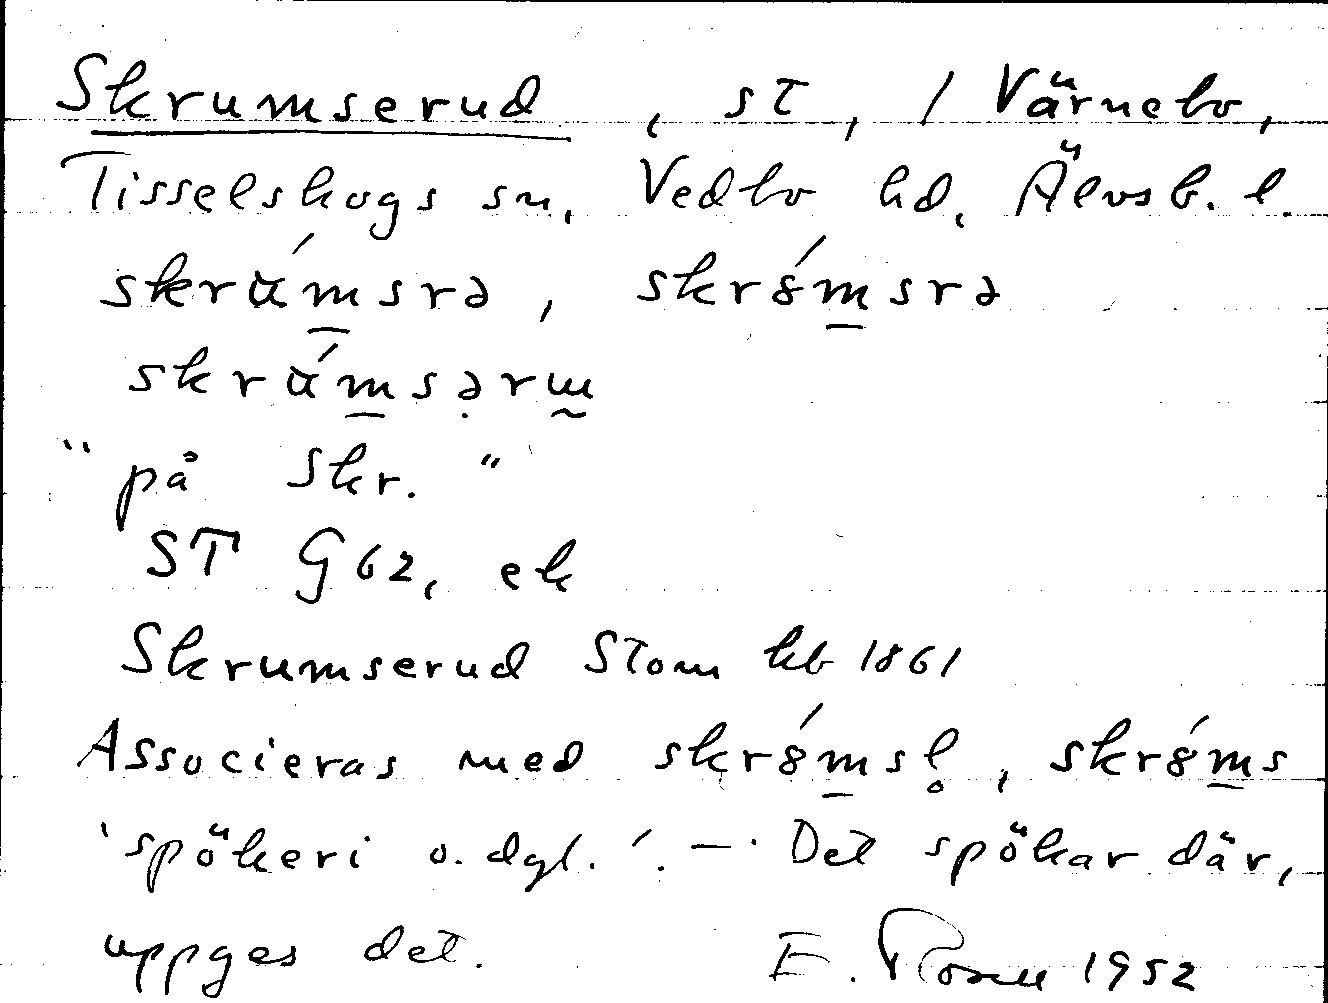 Skrumserud, st, / Värnebo,
Tisselskogs sn, Vedbo hd, Älvsb. l.
skrúmsrə, skr8́msrə
skrúmsərɯ
"på Skr."
ST G62, ek
Skrumserud Stom kb 1861
Associeras med skr8́msl̥, skr8́ms
'spökeri o. dgl.'. — Det spökar där,
uppges det. E. Rosell 1952